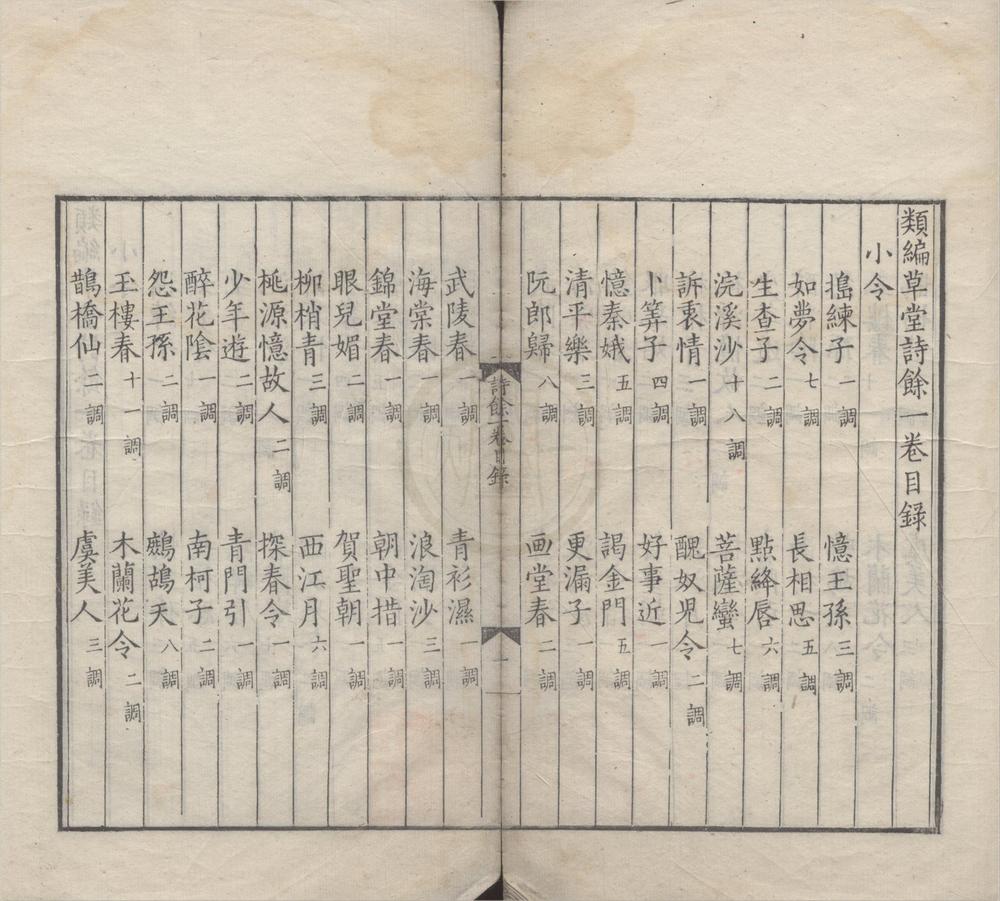 類編草堂詩餘一卷目録
小令
搗練子一調 憶王孫三調
如夢令七調 長相思五調
生查子二調 點絳唇六調
浣溪沙十八調 菩薩蠻七調
訴衷情一調 醜奴兒令二調
卜筭子四調 好事近一調
憶秦娥五調 謁金門五調
清平樂三調 更漏子一調
阮郎歸八調 画堂春二調
詩餘一卷目錄 一
武陵春一調 青衫濕一調
海棠春一調 浪淘沙三調
錦堂春一調 朝中措一調
眼兒媚二調 賀聖朝一調
柳梢青三調 西江月六調
桃源憶故人二調 探春令一調
少年遊二調 青門引一調
醉花陰一調 南柯子二調
怨王孫二調 鷓鴣天八調
玉樓春十一調 木蘭花令二調
鵲橋仙二調 虞美人三調